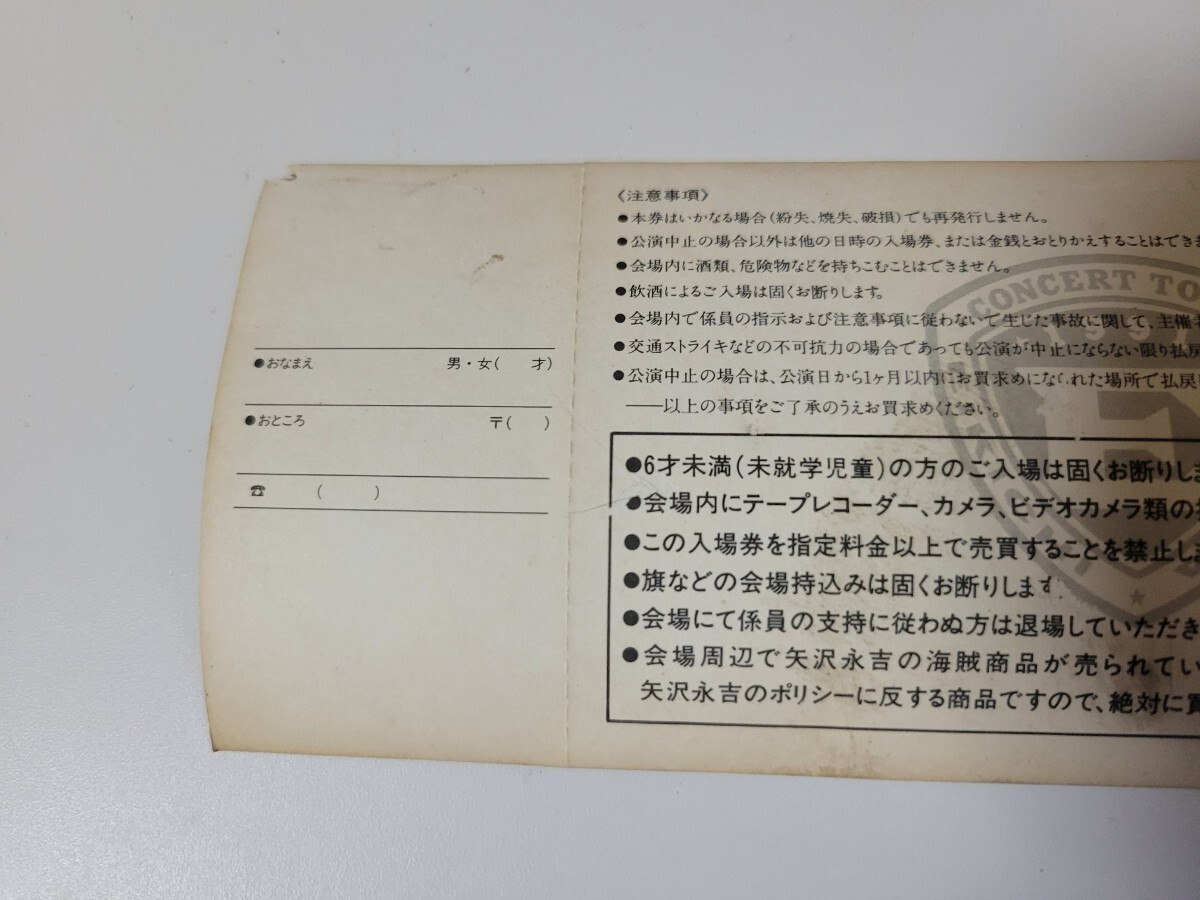 ●おなまえ 男・女( 才)
●おところ 〒( )
☎ ( )
《注意事項》
●本券はいかなる場合(紛失、焼失、破損)でも再発行しません。
●公演中止の場合以外は他の日時の入場券、または金銭とおとりかえすることはでき
●会場内に酒類、危険物などを持ちこむことはできません。
●飲酒によるご入場は固くお断りします。
●会場内で係員の指示および注意事項に従わないで生じた事故に関して、主催
●交通ストライキなどの不可抗力の場合であっても公演が中止にならない限り払戻
●公演中止の場合は、公演日から1ヶ月以内にお買求めになられた場所で払戻
──以上の事項をご了承のうえお買求めください。
CONCERT TO
●6才未満(未就学児童)の方のご入場は固くお断りしま
●会場内にテープレコーダー、カメラ、ビデオカメラ類の
●この入場券を指定料金以上で売買することを禁止しま
●旗などの会場持込みは固くお断りします.
●会場にて係員の支持に従わぬ方は退場していただき
●会場周辺で矢沢永吉の海賊商品が売られてい
矢沢永吉のポリシーに反する商品ですので、絶対に買